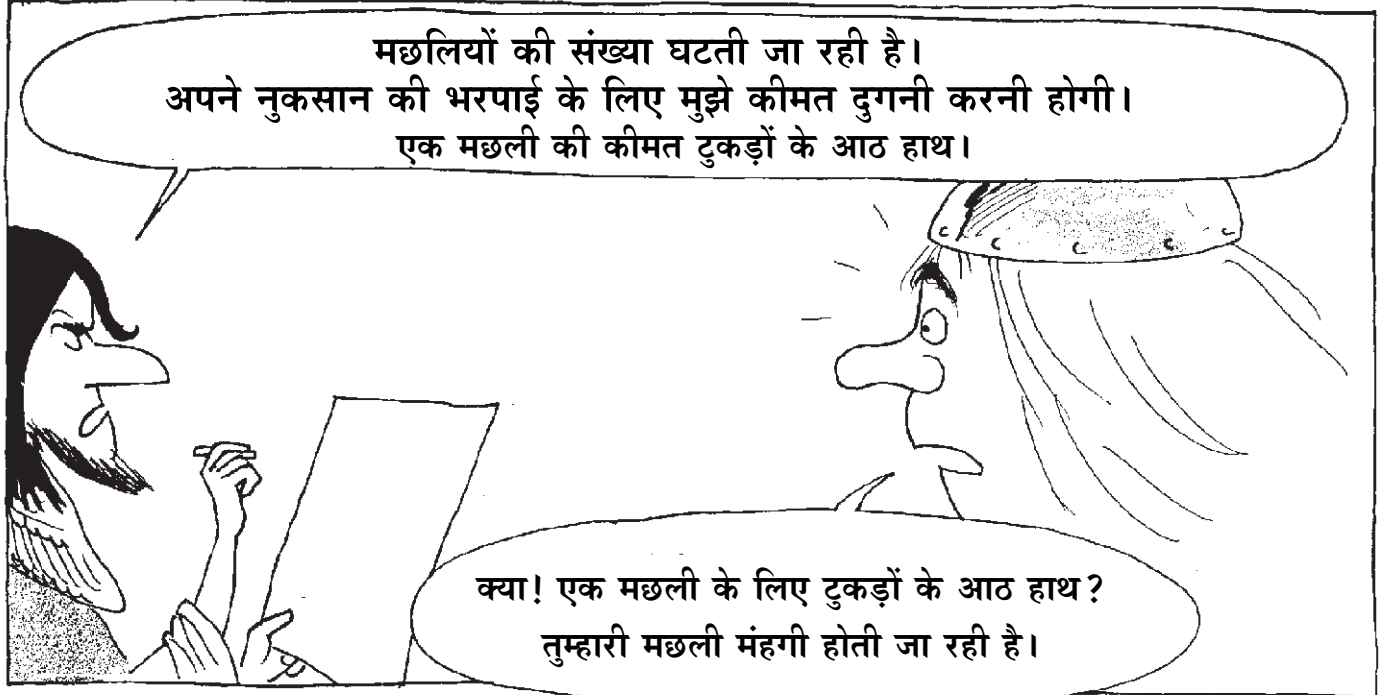 मछलियों की संख्या घटती जा रही है।
अपने नुकसान की भरपाई के लिए मुझे कीमत दुगनी करनी होगी।
एक मछली की कीमत टुकड़ों के आठ हाथ।
क्या! एक मछली के लिए टुकड़ों के आठ हाथ?
तुम्हारी मछली मंहगी होती जा रही है।